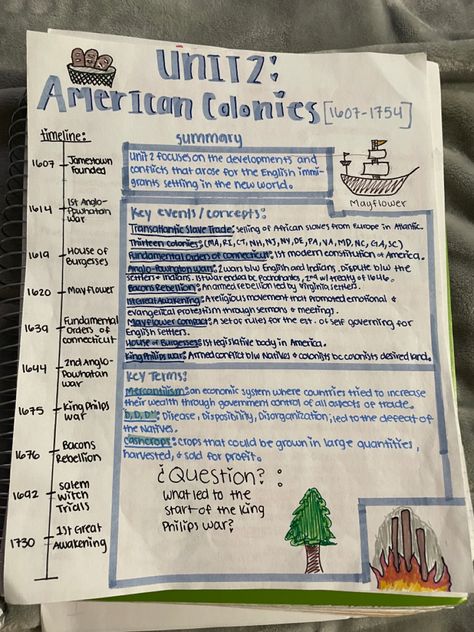 Unit 2:
American Colonies [1607-1754]
timeline:
1607 Jamestown
founded
1614 1st Anglo-
Powhatan
war
1619 House of
Burgesses
1620 Mayflower
1639 Fundamental
Orders of
Connecticut
1644 2nd Anglo-
Powhatan
war
1675 King Philips
war
1676 Bacons
Rebellion
1692 Salem
Witch
Trials
1730 1st Great
Awakening
summary
Unit 2 focuses on the developments and
conflicts that arose for the English immi-
grants settling in the new world.
Mayflower
Key events/concepts:
Transatlantic Slave Trade: selling of African slaves from Europe in Atlantic.
Thirteen Colonies: (MA, RI, CT, NH, NJ, NY, DE, PA, VA, MD, NC, GA, SC)
Fundamental Orders of Connecticut: 1st modern constitution of America.
Anglo-Powhatan Wars: 2 wars b/w English and Indians, dispute b/w the
settlers & Indians. 1st war ended bc Pochahontas, 2nd w/ treaty of 1646.
Bacons Rebellion: armed rebellion led by Virginia settlers.
1st Great Awakening: A religious movement that promoted emotional &
evangelical protestism through sermons & meetings.
Mayflower Compact: A set of rules for the est. of self governing for
English settlers.
House of Burgesses: 1st legislative body in America.
King Philips War: Armed conflict b/w Natives & colonists bc colonists desired land.
Key Terms:
Mercantilism: an economic system where countries tried to increase
their wealth through government control of all aspects of trade.
Disease, Disposibility, Disorganization; led to the defeat of
the Natives.
Cashcrops: crops that could be grown in large quantities,
harvested, & sold for profit.
¿Question?:
What led to the
start of the King
Philips war?